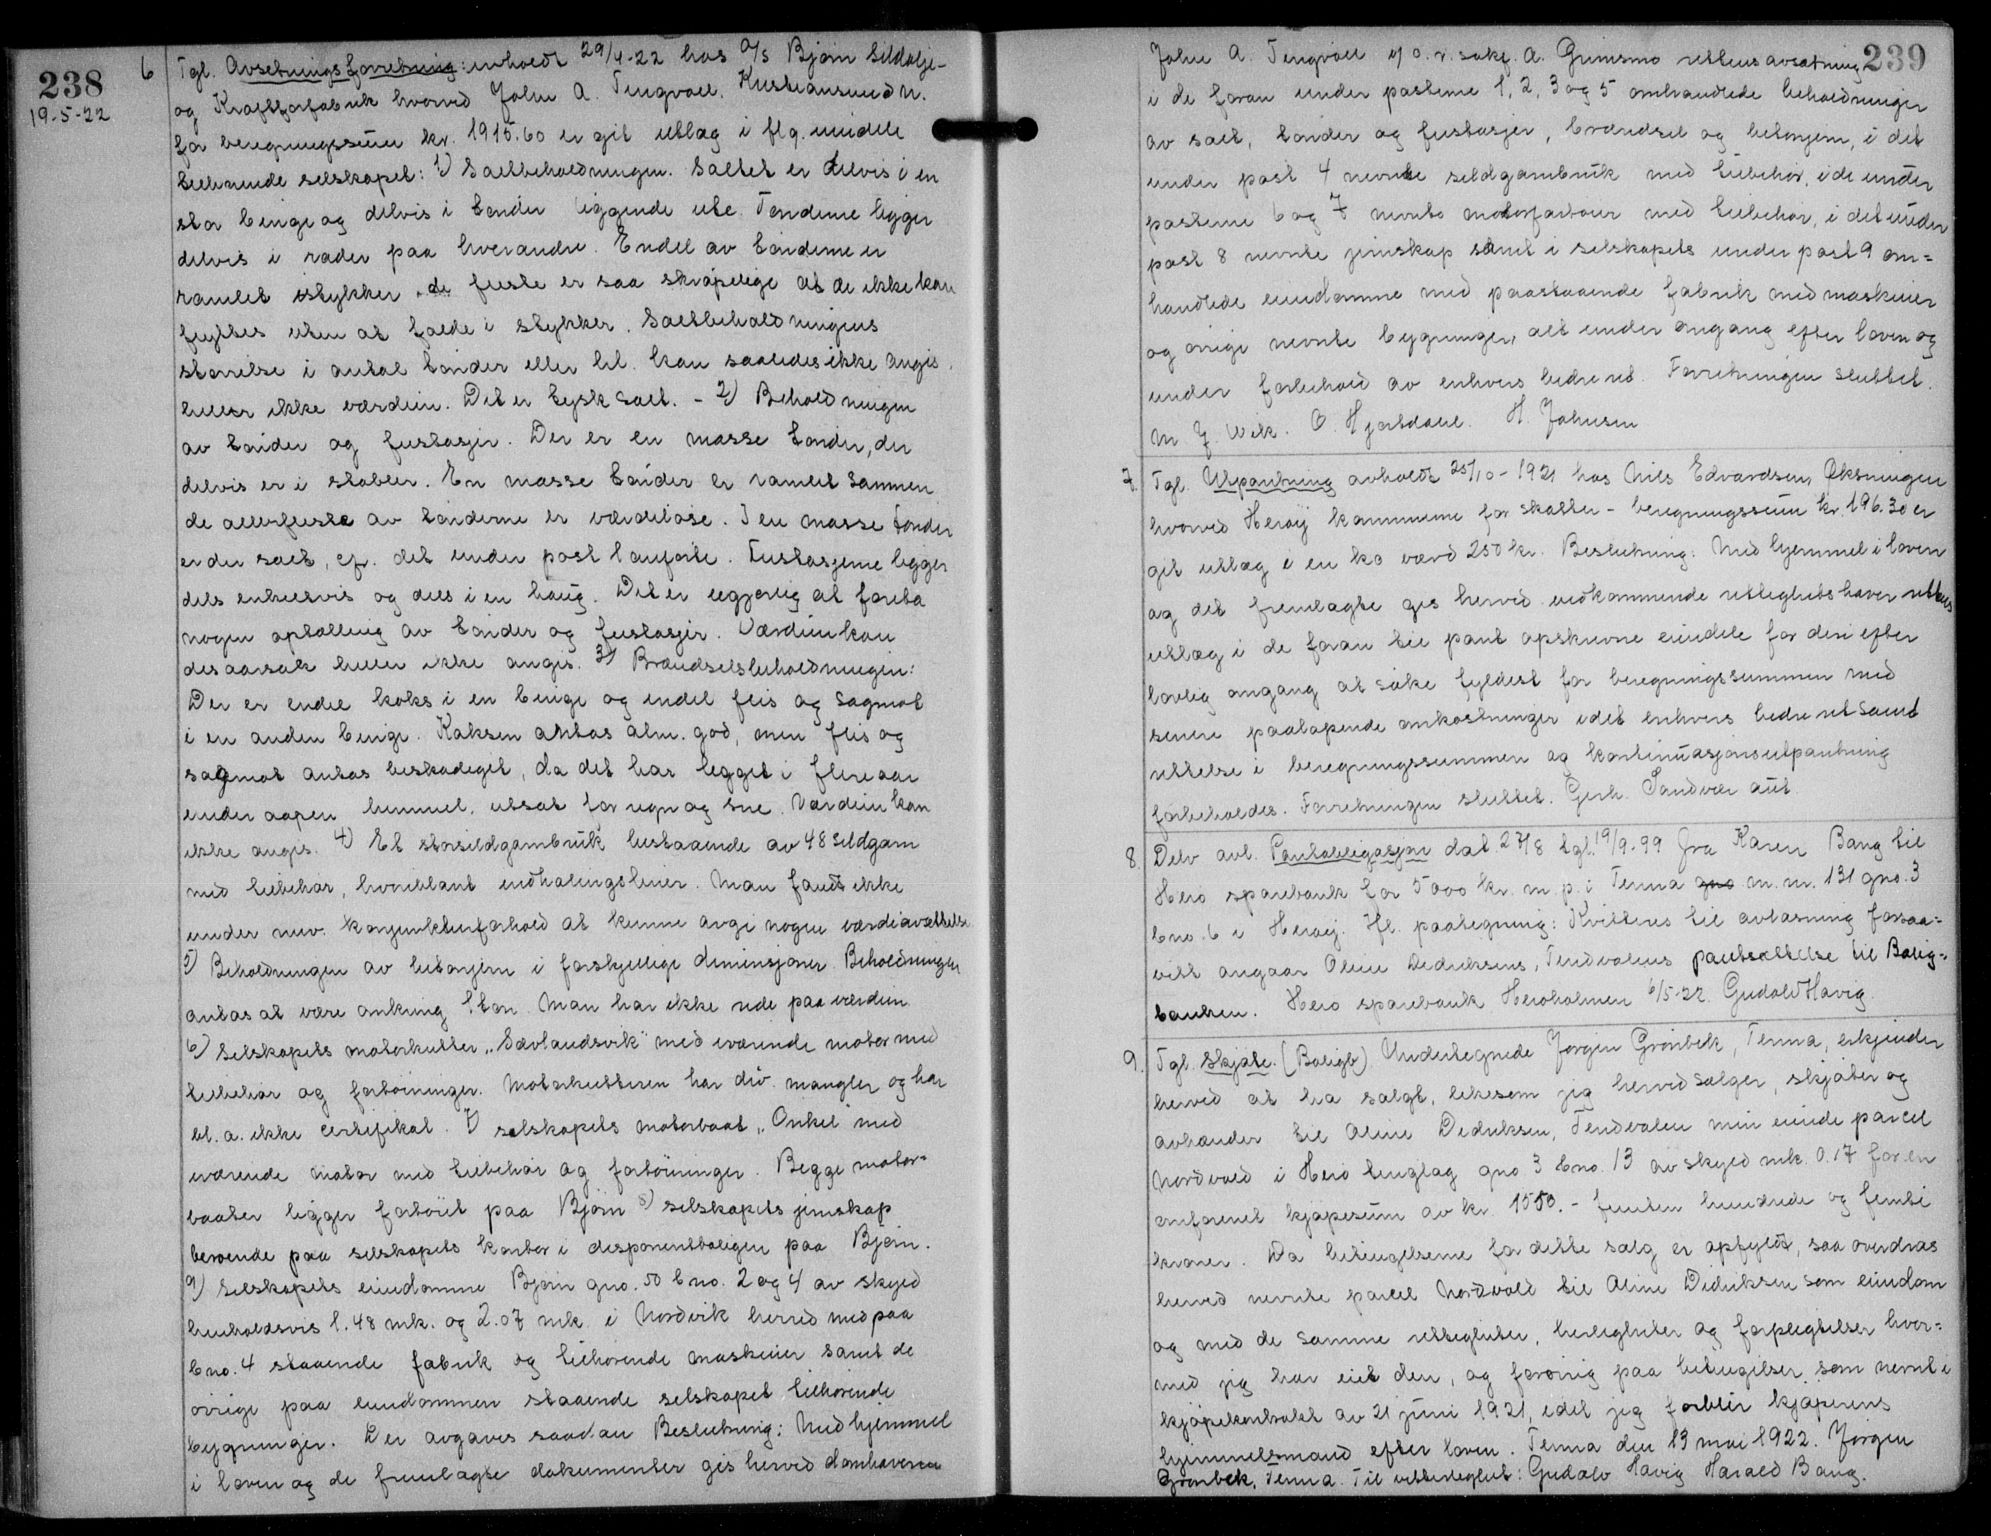 238
19-5-22
6 Tgl. Avsetningsforretning: avholdt 29/4-22 hos A/S Bjørn Sildolje-
og Kraftforfabrik hvorved John A. Tengvall. Kristiansund N.
for beregningssum kr. 1915.60 er git utlæg i flg. eiendele
tilhørende selskapet: 1) Saltbeholdningen. Saltet er delvis i en
stor binge og delvis i tønder liggende ute. Tønderne ligger
delvis i rader paa hverandre. Endel av tønderne er
ramlet istykker, de fleste er saa skrøpelige at de ikke kan
flyttes uten at falde i stykker. Saltbeholdningens
størrelse i antal tønder eller hl. kan saaledes ikke angis,
heller ikke værdien. Det er tysk salt. - 2) Beholdningen
av tønder og fustasjer. Der er en masse tønder, der
delvis er i stabler. En masse tønder er ramlet sammen
de allerfleste av tønderne er værdiløse. I en masse tønder
er der salt, cfr. det under post 1 anførte. Fustasjerne ligger
dels enkeltvis og dels i en haug. Det er ugjørlig at foreta
nogen optælling av tønder og fustasjer. Værdien kan
desaarsak heller ikke angis. 3) Brændselsbeholdningen:
Der er endel koks i en binge og endel flis og sagmot
i en anden binge. Koksen antas alm. god, men flis og
sagmot antas beskadiget, da det har ligget i flere aar
under aapen himmel, utsat for regn og sne. Værdien kan
ikke angis. 4) Et storsildgarnbruk bestaaende av 48 sildgarn
med tilbehør, hvoriblant indhalingsliner. Man fandt ikke
under nuv. konjunkturforhold at kunne avgi nogen værdiansettelse
5) Beholdningen av betonjern i forskjellige dimensjoner. Beholdningen
antas at være omkring 1 ton. Man har ikke rede paa værdien
6) Selskapets motorkutter "Sævlandsvik" med iværende motor med
tilbehør og fortøininger. Motorkutteren har div. mangler og har
bl. a. ikke certifikat. 7) selskapets motorbaat "Onkel" med
iværende motor med tilbehør og fortøininger. Begge motor-
baater ligger fortøiet paa Bjørn 8) selskapets jernskap
beroende paa selskapets kontor i disponentboligen paa Bjørn.
9) Selskapets eiendomme Bjørn gno. 50 bno. 2 og 4 av skyld
henholdsvis 1.48 mk. og 2.07 mk. i Nordvik herred med paa
bno. 4 staaende fabrik og tilhørende maskiner samt de
øvrige paa eiendommen staaende selskapet tilhørende
bygninger. Der avgaves saadan Beslutning: Med hjemmel
i loven og de fremlagte dokumenter gis herved domhaveren
239
John A. Tengvall v/ o.r. sakf. A. Grimsmo rettens avsætning
i de foran under posterne 1, 2, 3 og 5 omhandlede beholdninger
av salt, tønder og fustasjer, brændsel og betonjern, i det
under post 4 nevnte sildgarnbruk med tilbehør, i de under
posterne 6 og 7 nevnte motorfartøier med tilbehør, i det under
post 8 nevnte jernskap samt i selskapets under post 9 om-
handlede eiendomme med paastaaende fabrik med maskiner
og øvrige nevnte bygninger, alt under omgang efter loven og
under forbehold av enhvers bedre ret. Forretningen sluttet.
M. Z. Wik. O. Hjortdahl. H. Johnsen
7. Tgl. Utpantning avholdt 25/10-1921 hos Nils Edvardsen, Øksningen
hvorved Herøy kommune for skatter - beregningssum kr. 196.30 er
git utlæg i en ko værd 250 kr. Beslutning: Med hjemmel i loven
og det fremlagte gis herved vedkommende rettighetshaver rettens
utlæg i de foran til pant opskrevne eiendele for deri efter
lovlig omgang at søke fyldest for beregningssummen med
senere paaløpende omkostninger idet enhvers bedre ret samt
rettelse i beregningssummen og kontinuasjonsutpantning
forbeholdes. Forretningen sluttet. Gerh. Sandvær aut.
8. Delv. avl. Pantobligasjon dat. 27/8 tgl. 19/9-99 fra Karen Bang til
Herø sparebank for 5000 kr. m. p. i Tenna gno m. nr. 131 gno. 3
bno. 6 i Herøy. Hf. paategning: Kvitteres til avløsning forsaa-
vidt angaar Oline Dedriksens, Tendvalens pantsættelse til Bolig-
banken. Herø sparebank Herøholmen 6/5-22. Gudolv Havig
9. Tgl. Skjøte. (Boligb.) Undertegnede Jørgen Grønbek, Tenna, erkjender
herved at ha solgt, likesom jeg herved sælger, skjøter og
avhænder til Oline Dedriksen, Tendvalen min eiende parcel
Nordvold i Herø tinglag gno 3 bno. 13 av skyld mk. 0.17 for en
omforenet kjøpesum av kr. 1550.- femten hundrede og femti
kroner. Da betingelserne for dette salg er opfyldt, saa overdras
herved nevnte parcel Nordvold til Oline Didriksen som eiendom
og med de samme rettigheter, herligheter og forpligtelser hvor-
med jeg har eiet den, og forøvrig paa betingelser som nevnt i
kjøpekontrakt av 21 juni 1921, idet jeg forblir kjøperens
hjemmelsmand efter loven. Tenna den 13 mai 1922. Jørgen
Grønbek, Tenna. Til vitterlighet: Gudolv Havig Harald Bang.